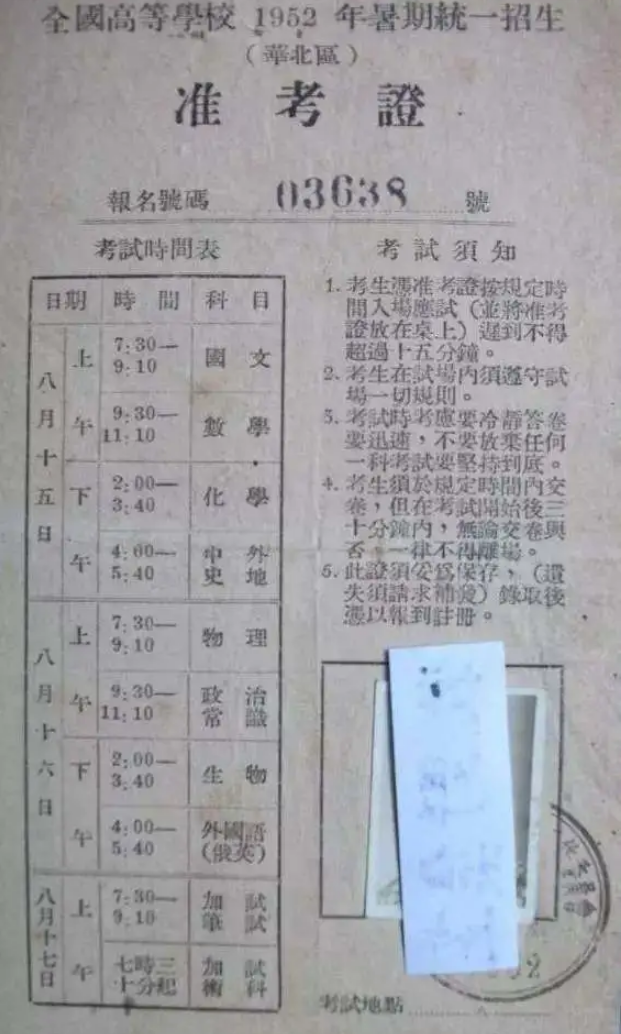 全國高等學校 1952 年暑期統一招生
（華北區）
准考證
報名號碼 03638 號
考試時間表
日期 時間 科目
八月十五日
上午
7:30—9:10 國文
9:30—11:10 數學
下午
2:00—3:40 化學
4:00—5:40 中外史地
八月十六日
上午
7:30—9:10 物理
9:30—11:10 政治常識
下午
2:00—3:40 生物
4:00—5:40 外國語(俄英)
八月十七日
上午
7:30—9:10 加試筆試
七時三十分起 加試術科
考試須知
1. 考生憑准考證按規定時
間入場應試（並將准考
證放在桌上）遲到不得
超過十五分鐘。
2. 考生在試場內須遵守試
場一切規則。
3. 考試時考慮要冷靜答卷
要迅速，不要放棄任何
一科考試要堅持到底。
4. 考生須於規定時間內交
卷，但在考試開始後三
十分鐘內，無論交卷與
否，一律不得離場。
5. 此證須妥爲保存，（遺
失須請求補發）錄取後
憑以報到註冊。
考試地點